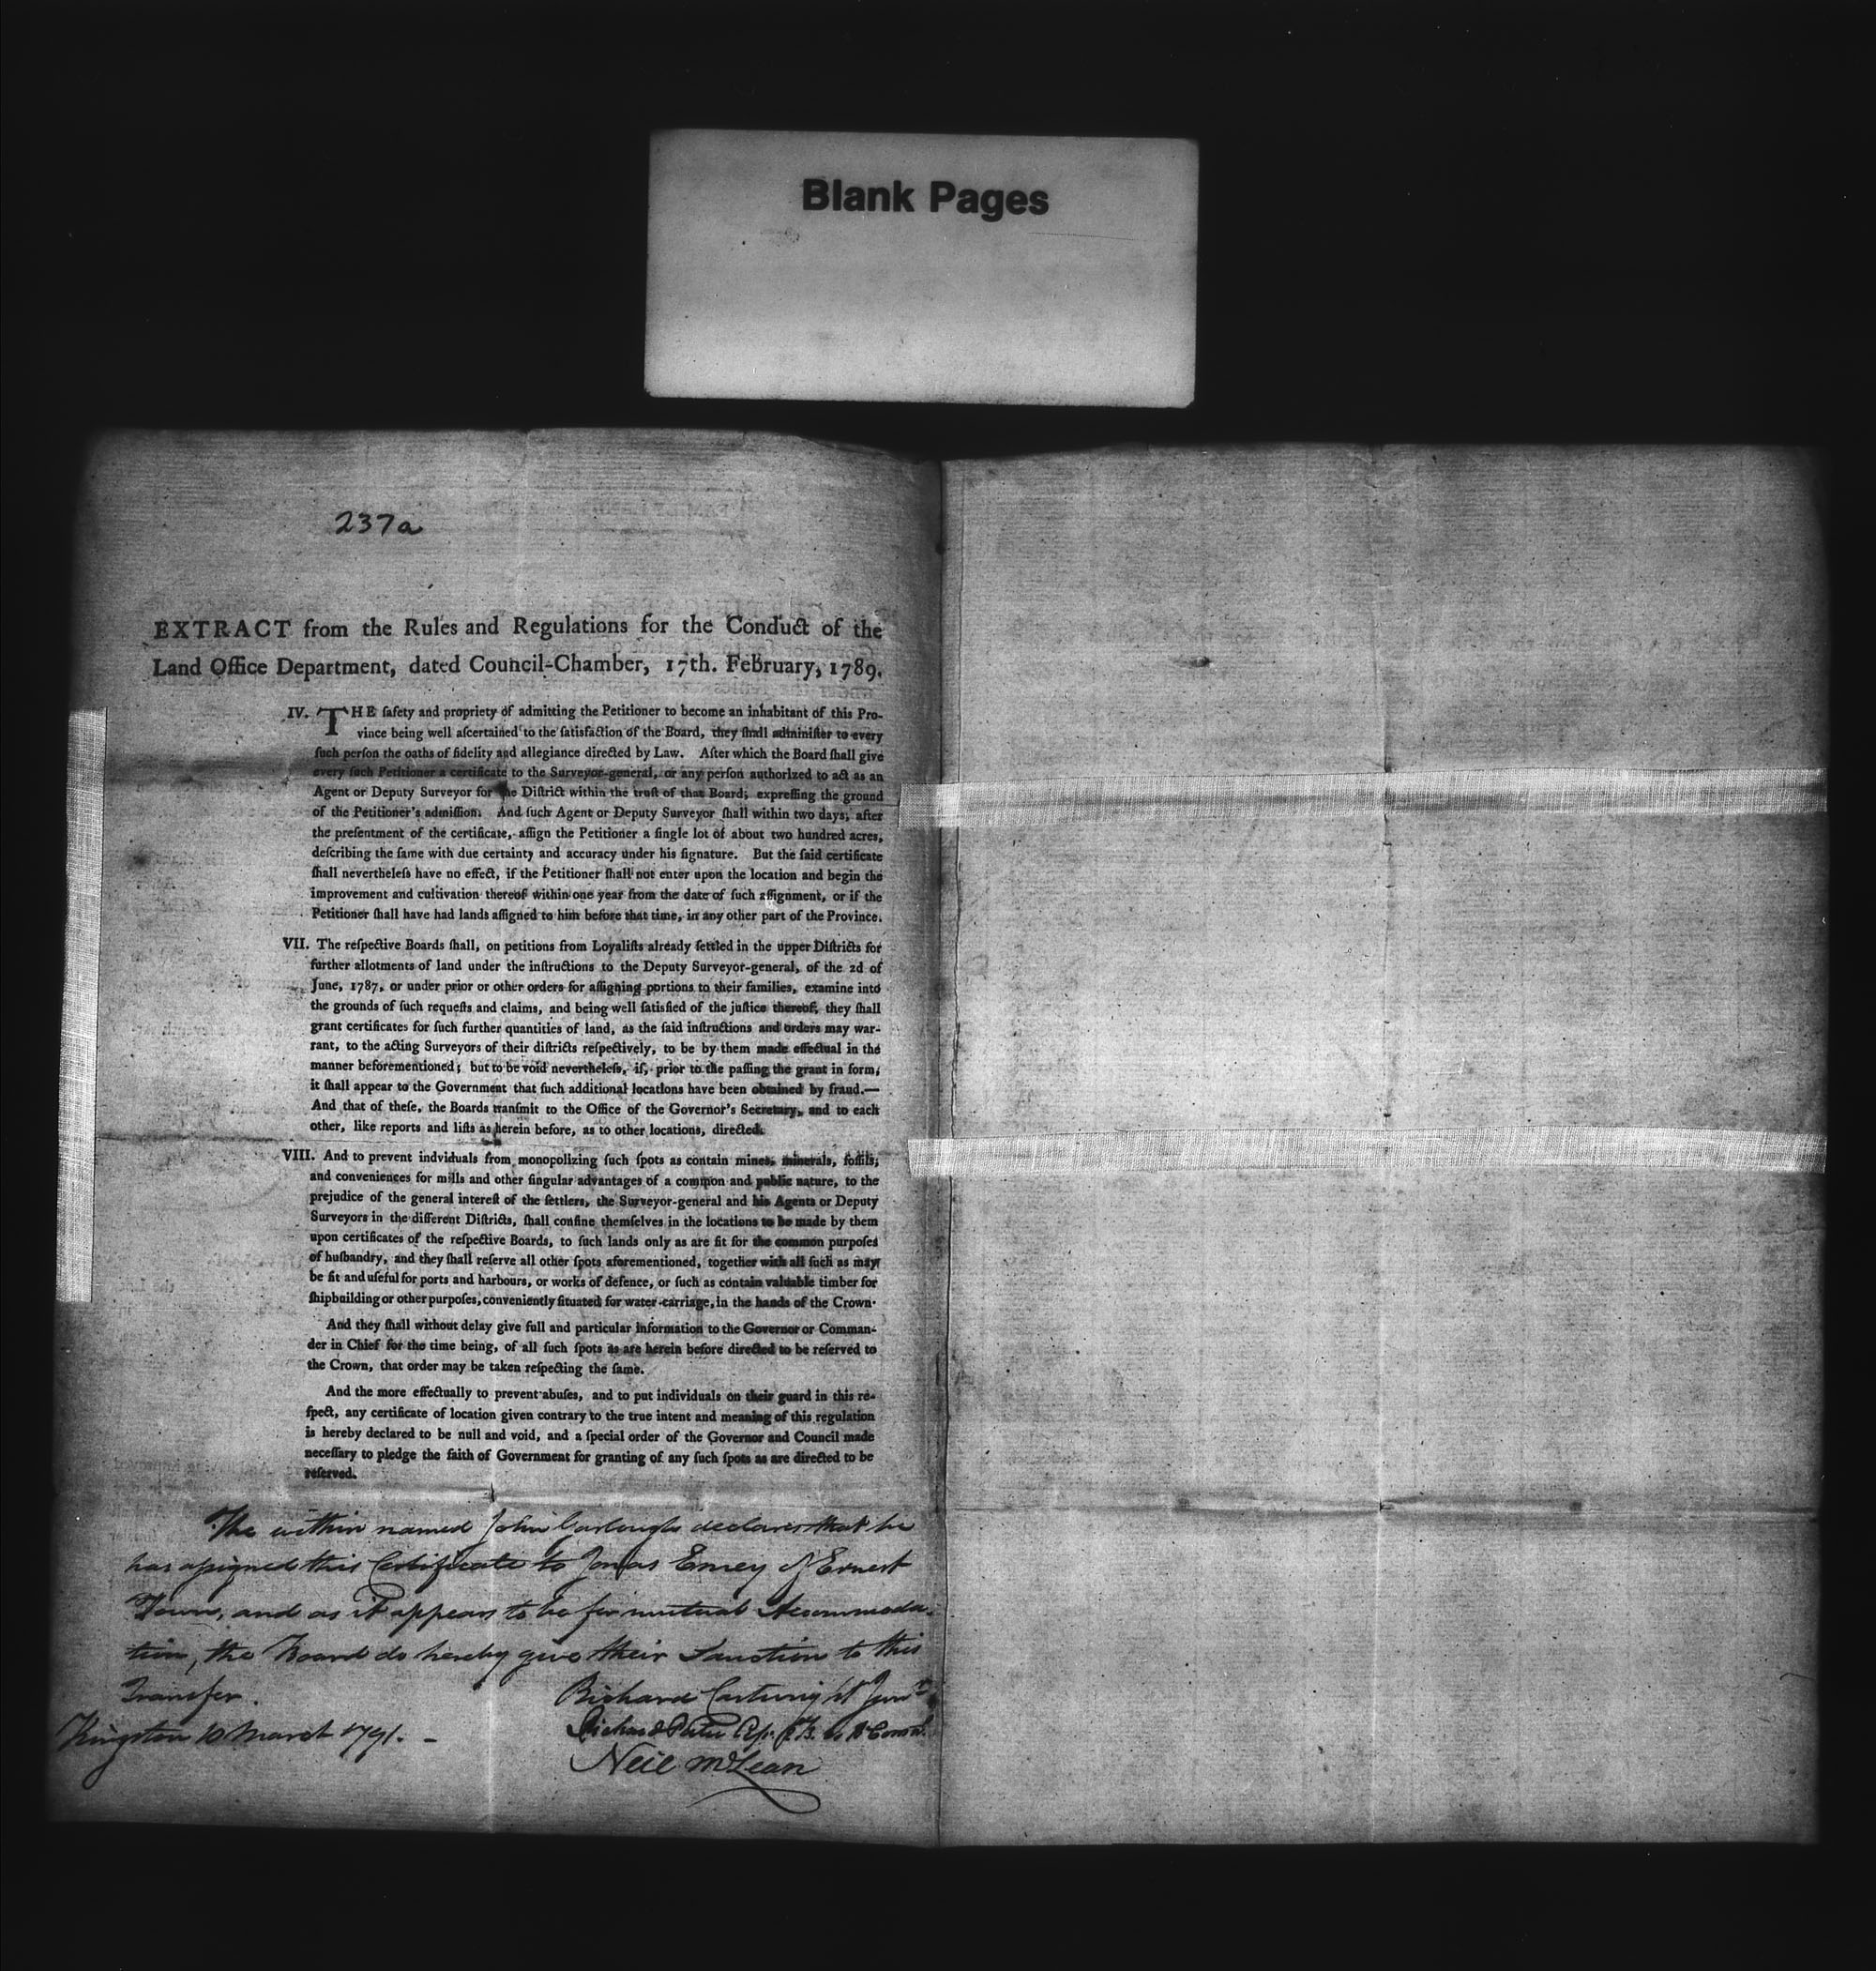 Blank Pages
237a
EXTRACT from the Rules and Regulations for the Conduct of the
Land Office Department, dated Council-Chamber, 17th. February, 1789.
IV. THE ſafety and propriety of admitting the Petitioner to become an inhabitant of this Pro-
vince being well aſcertained to the ſatisfaction of the Board, they ſhall adminiſter to every
ſuch perſon the oaths of fidelity and allegiance directed by Law. After which the Board ſhall give
every ſuch Petitioner a certificate to the Surveyor-general, or any perſon authorized to act as an
Agent or Deputy Surveyor for the Diſtrict within the truſt of that Board; expreſſing the ground
of the Petitioner's admiſſion. And ſuch Agent or Deputy Surveyor ſhall within two days, after
the preſentment of the certificate, aſſign the Petitioner a ſingle lot of about two hundred acres,
deſcribing the ſame with due certainty and accuracy under his ſignature. But the ſaid certificate
ſhall nevertheleſs have no effect, if the Petitioner ſhall not enter upon the location and begin the
improvement and cultivation thereof within one year from the date of ſuch aſſignment, or if the
Petitioner ſhall have had lands aſſigned to him before that time, in any other part of the Province.
VII. The reſpective Boards ſhall, on petitions from Loyaliſts already ſettled in the upper Diſtricts for
further allotments of land under the inſtructions to the Deputy Surveyor-general, of the 2d of
June, 1787, or under prior or other orders for aſſigning portions to their families, examine into
the grounds of ſuch requeſts and claims, and being well ſatisfied of the juſtice thereof, they ſhall
grant certificates for ſuch further quantities of land, as the ſaid inſtructions and orders may war-
rant, to the acting Surveyors of their diſtricts reſpectively, to be by them made effectual in the
manner beforementioned; but to be void nevertheleſs, if, prior to the paſſing the grant in form,
it ſhall appear to the Government that ſuch additional locations have been obtained by fraud.—
And that of theſe, the Boards tranſmit to the Office of the Governor's Secretary, and to each
other, like reports and liſts as herein before, as to other locations, directed.
VIII. And to prevent indviduals from monopolizing ſuch ſpots as contain mines, minerals, foſſils,
and conveniences for mills and other ſingular advantages of a common and public nature, to the
prejudice of the general intereſt of the ſettlers, the Surveyor-general and his Agents or Deputy
Surveyors in the different Diſtricts, ſhall confine themſelves in the locations to be made by them
upon certificates of the reſpective Boards, to ſuch lands only as are fit for the common purpoſes
of huſbandry, and they ſhall reſerve all other ſpots aforementioned, together with all ſuch as may
be fit and uſeful for ports and harbours, or works of defence, or ſuch as contain valuable timber for
ſhipbuilding or other purpoſes, conveniently ſituated for water-carriage, in the hands of the Crown.
And they ſhall without delay give full and particular information to the Governor or Comman-
der in Chief for the time being, of all ſuch ſpots as are herein before directed to be reſerved to
the Crown, that order may be taken reſpecting the ſame.
And the more effectually to prevent abuſes, and to put individuals on their guard in this re-
ſpect, any certificate of location given contrary to the true intent and meaning of this regulation
is hereby declared to be null and void, and a ſpecial order of the Governor and Council made
neceſſary to pledge the faith of Government for granting of any ſuch ſpots as are directed to be
reſerved.
The within named John Carlough declares that he
has aſsigned this Certificate to Jonas Emey of Ernest
Town, and as it appears to be for mutual Accommoda-
tion, the Board do hereby give their Sanction to this
Transfer.
Richard Cartwright Junr
Kingston 10 March 1791. -
Richard Porter
Neil McLean